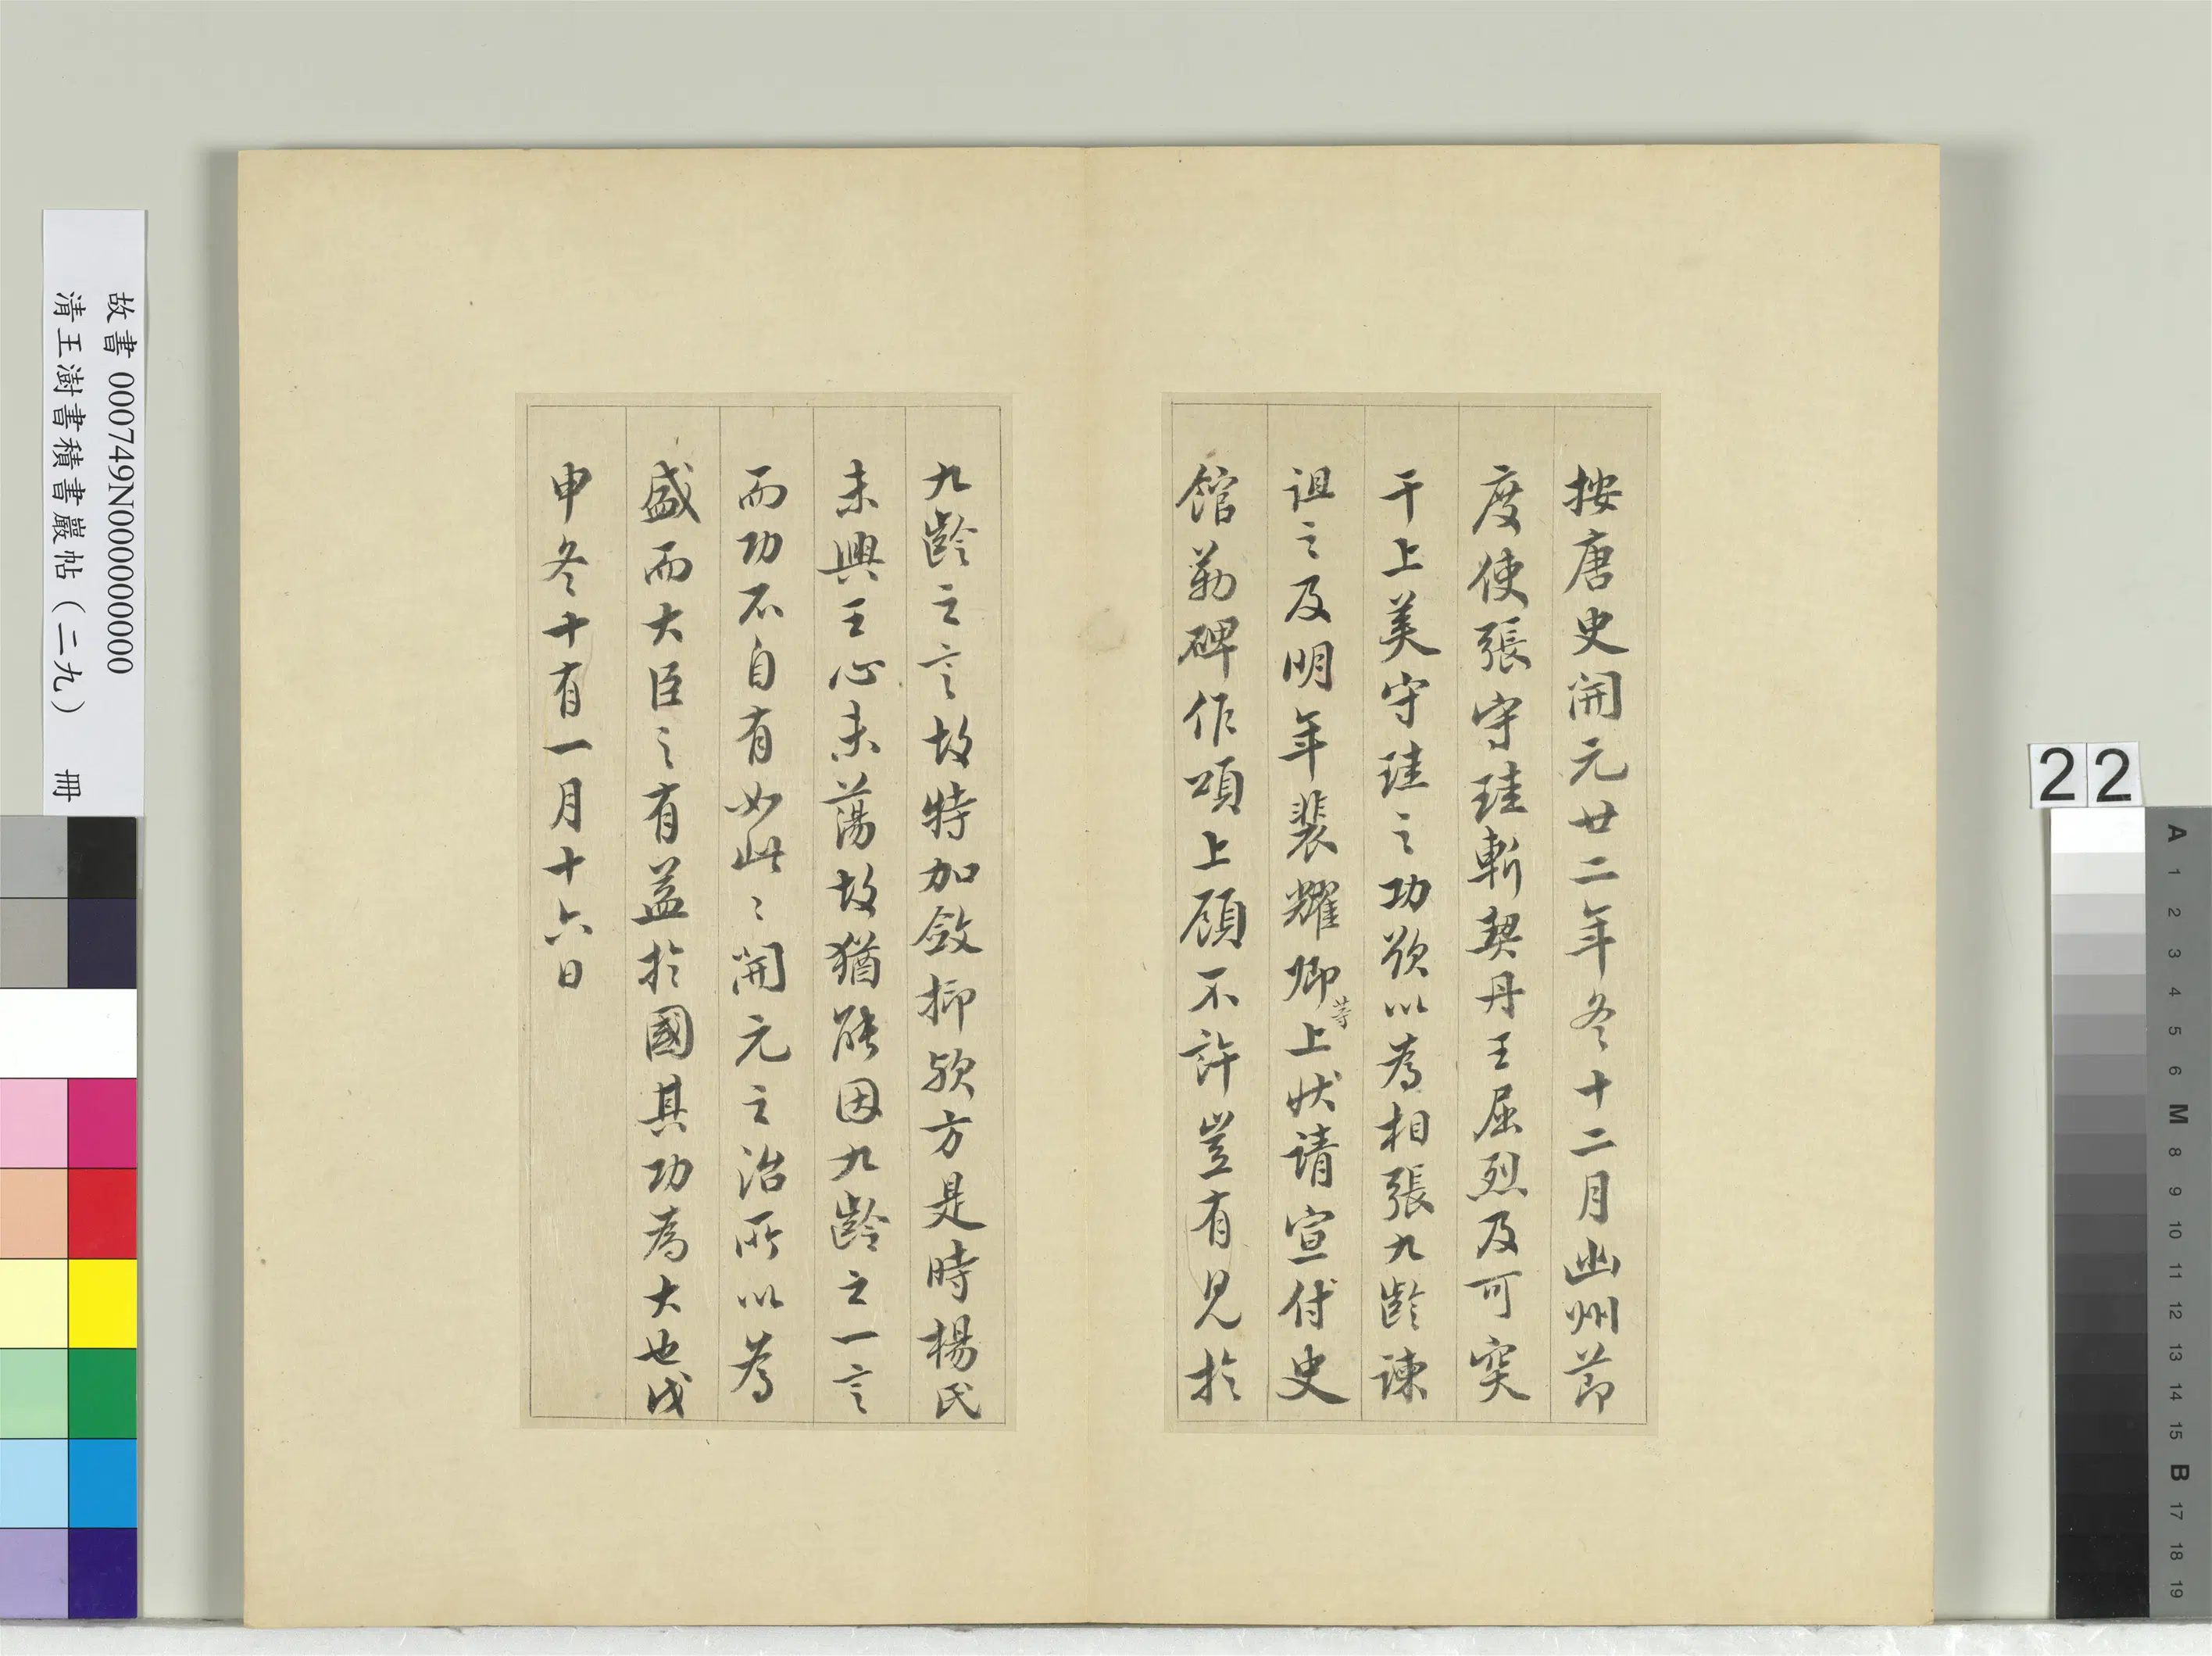 按唐史開元廿二年冬十二月幽州節
度使張守珪斬契丹王屈烈及可突
干上美守珪之功欲以為相張九齡諫
詛之及明年裴耀卿等上狀請宣付史
館勒碑作頌上顧不許豈有見於
九齡之言故特加斂抑歟方是時楊氏
未興王心未蕩故猶能因九齡之一言
而功不自有如此〻開元之治所以為
盛而大臣之有益於國其功為大也戊
申冬十有一月十六日
故書 000749N000000000
清王澍書積書巖帖（二九） 冊
22
A
1
2
3
4
5
6
M
8
9
10
11
12
13
14
15
B
17
18
19